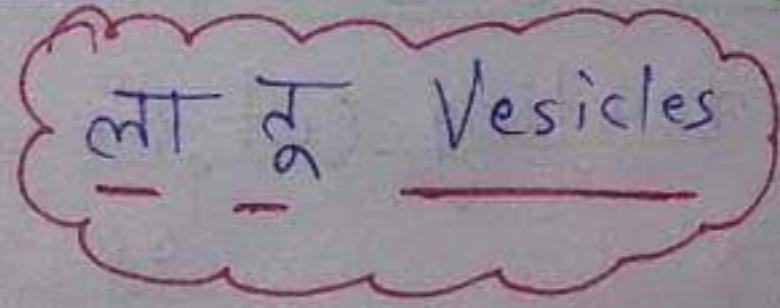 ला तू Vesicles